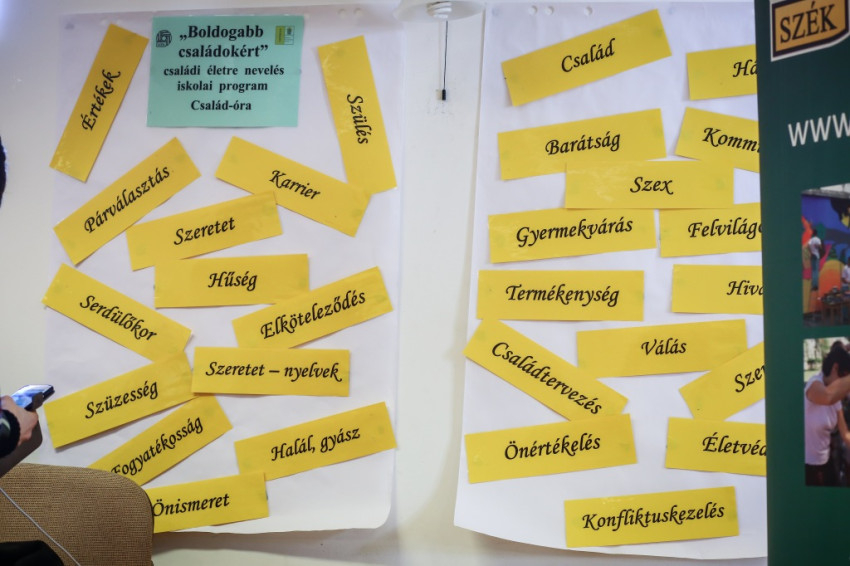 „Boldogabb
családokért”
családi életre nevelés
iskolai program
Család-óra
Értékek
Szülés
Párválasztás
Karrier
Szeretet
Hűség
Serdülőkor
Elköteleződés
Szeretet – nyelvek
Szüzesség
Fogyatékosság
Halál, gyász
Önismeret
Család
Barátság
Szex
Gyermekvárás
Termékenység
Válás
Családtervezés
Önértékelés
Konfliktuskezelés
SZÉK
WWW